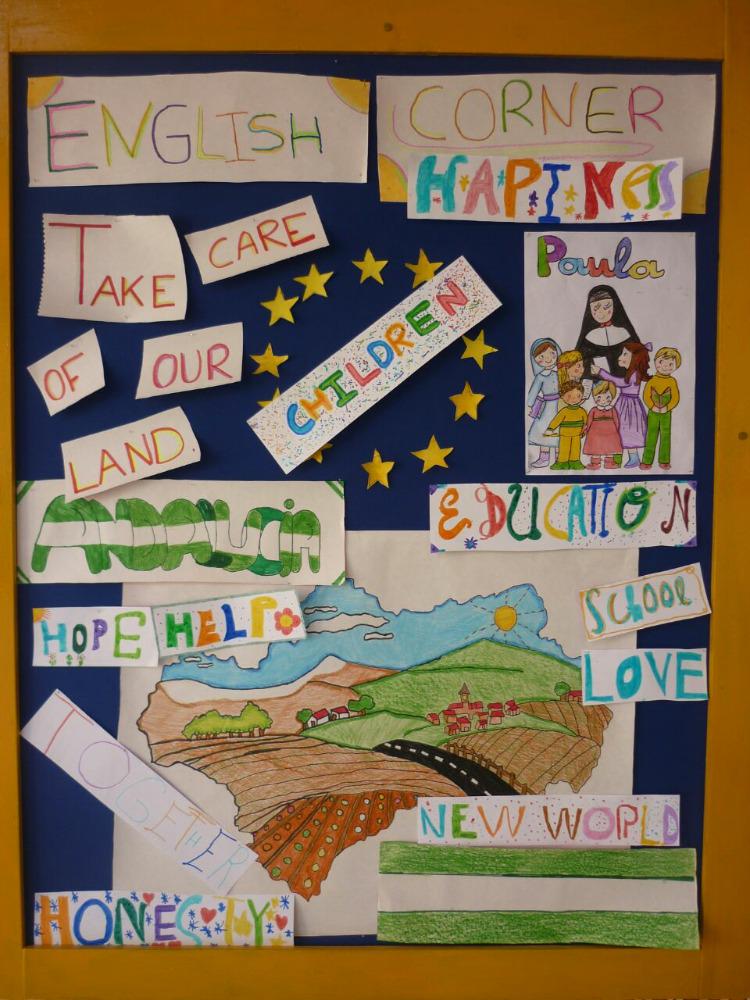 ENGLISH
CORNER
HAPINESS
TAKE CARE
OF OUR
LAND
CHILDREN
Paula
ANDALUCíA
EDUCATION
HOPE
HELP
SCHOOL
LOVE
TOGETHER
NEW WORLD
HONESTY